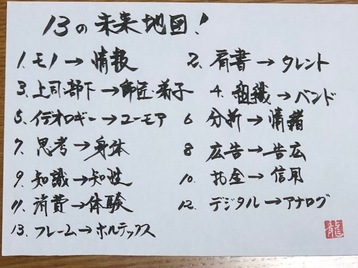 13の未来地図!
1. モノ→情報 2. 肩書→タレント
3. 上司・部下→師匠・弟子 4. 組織→バンド
5. イデオロギー→ユーモア 6 分析→情緒
7. 思考→身体 8 広告→告広
9. 知識→知性 10. お金→信用
11. 消費→体験 12. デジタル→アナログ
13. フレーム→ボルテックス
龍